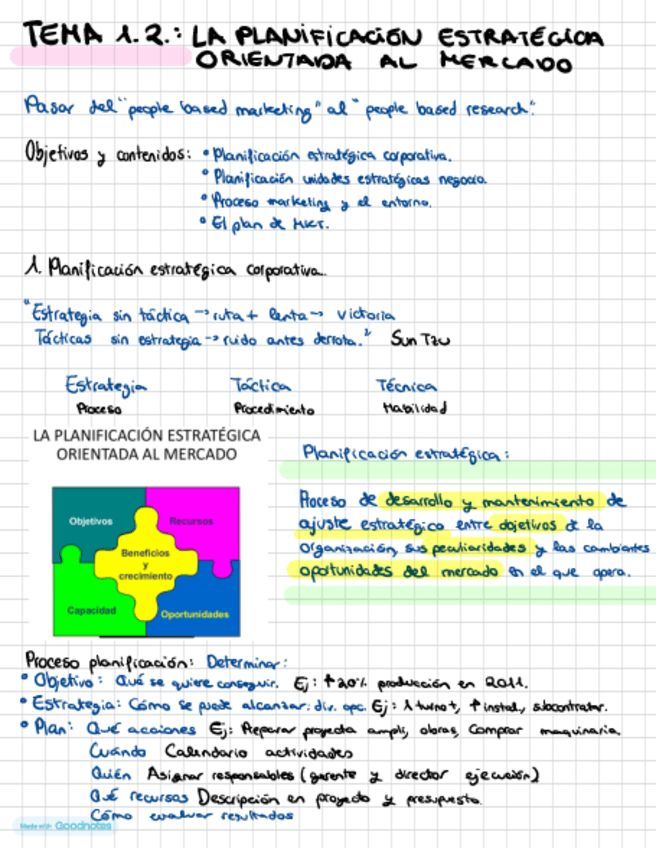 TEMA 1.2.: LA PLANIFICACIÓN ESTRATÉGICA
ORIENTADA AL MERCADO
Pasar del "people based marketing" al "people based research".
Objetivos y contenidos: • Planificación estratégica corporativa.
• Planificación unidades estratégicas negocio.
• Proceso marketing y el entorno.
• El plan de Mkt.
1. Planificación estratégica corporativa.
"Estrategia sin táctica → ruta + lenta → victoria
Tácticas sin estrategia → ruido antes derrota." Sun Tzu
Estrategia Táctica Técnica
Proceso Procedimiento Habilidad
LA PLANIFICACIÓN ESTRATÉGICA
ORIENTADA AL MERCADO
Objetivos Recursos
Beneficios
y
crecimiento
Capacidad Oportunidades
Planificación estratégica:
Proceso de desarrollo y mantenimiento de
ajuste estratégico entre objetivos de la
organización, sus peculiaridades y las cambiantes
oportunidades del mercado en el que opera.
Proceso planificación: Determinar:
• Objetivo: Qué se quiere conseguir. Ej: ↑20% producción en 2011.
• Estrategia: Cómo se puede alcanzar: div. opc. Ej: 1 turno+, ↑ instal, subcontratar.
• Plan: Qué acciones Ej: Preparar proyecto ampli, obras, comprar maquinaria.
Cuándo Calendario actividades
Quién Asignar responsables (gerente y director ejecución)
Qué recursos Descripción en proyecto y presupuesto.
Cómo evaluar resultados
Made with Goodnotes